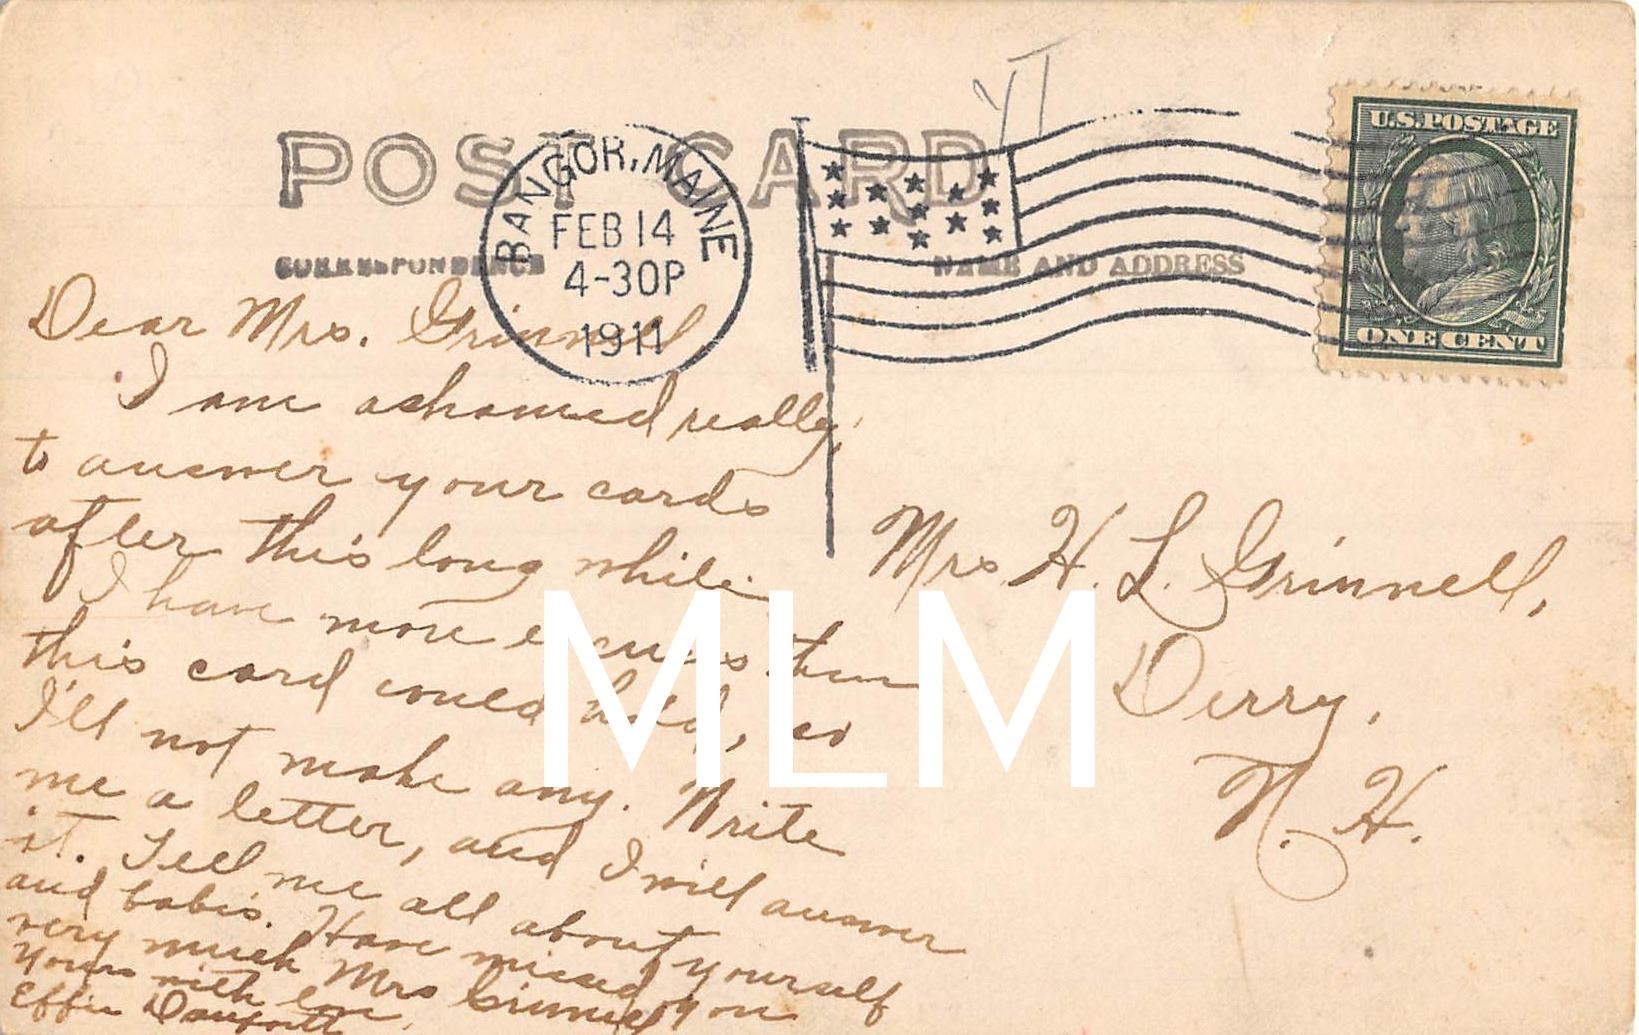 POST CARD
BANGOR, MAINE
FEB 14
4-30P
1911
U.S. POSTAGE
ONE CENT
CORRESPONDENCE
NAME AND ADDRESS
Dear Mrs. Grinnell
I am ashamed really,
to answer your cards
after this long while.
I have more excuses than
this card could hold, so
I'll not make any. Write
me a letter, and I will answer
it. Tell me all about yourself
and babis. Have missed you
very much Mrs Grinnell
Yours with love,
Effie
Mrs. H. L. Grinnell,
Derry,
N. H.
VT
MLM